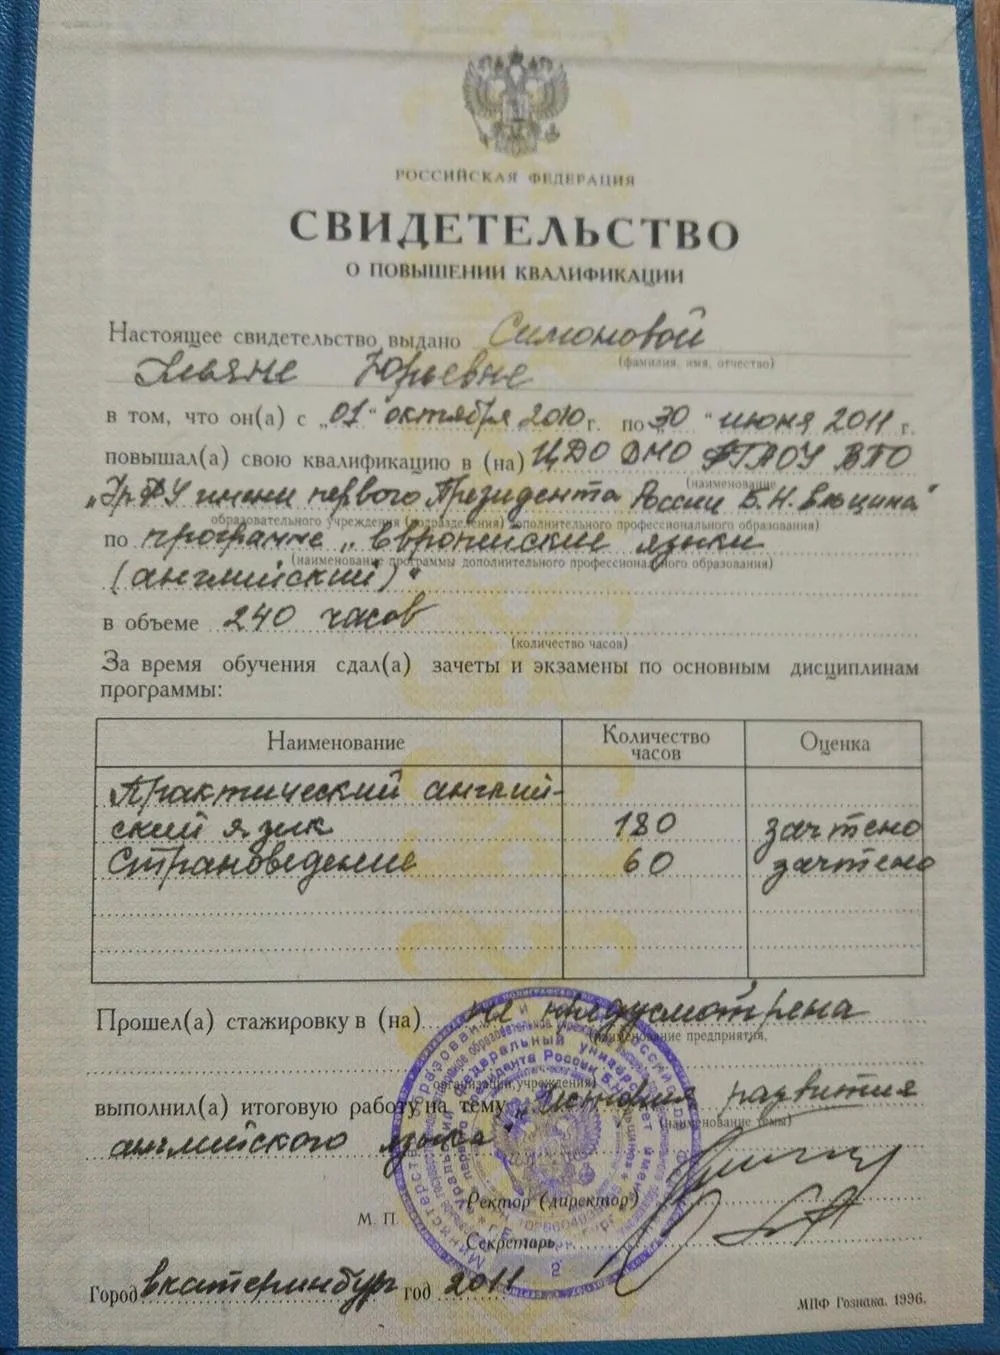 РОССИЙСКАЯ ФЕДЕРАЦИЯ
СВИДЕТЕЛЬСТВО
О ПОВЫШЕНИИ КВАЛИФИКАЦИИ
Настоящее свидетельство выдано Симоновой
(фамилия, имя, отчество)
Ульяне Юрьевне
в том, что он(а) с „01" октября 2010 г. по „30" июня 2011 г.
повышал(а) свою квалификацию в (на) ЦДО ДМО ФГАОУ ВПО
(наименование
„УрФУ имени первого Президента России Б.Н. Ельцина"
образовательного учреждения (подразделения) дополнительного профессионального образования)
по программе „Европейские языки
(наименование программы дополнительного профессионального образования)
(английский)"
в объеме 240 часов
(количество часов)
За время обучения сдал(а) зачеты и экзамены по основным дисциплинам
программы:
Наименование Количество часов Оценка
Практический англий-
ский язык 180 зачтено
Страноведение 60 зачтено
Прошел(а) стажировку в (на) не предусмотрена
(наименование предприятия,
организации, учреждения)
выполнил(а) итоговую работу на тему „История развития
(наименование темы)
английского языка"
Ректор (директор)
М. П.
Секретарь
2
Город Екатеринбург год 2011
МПФ Гознака. 1996.